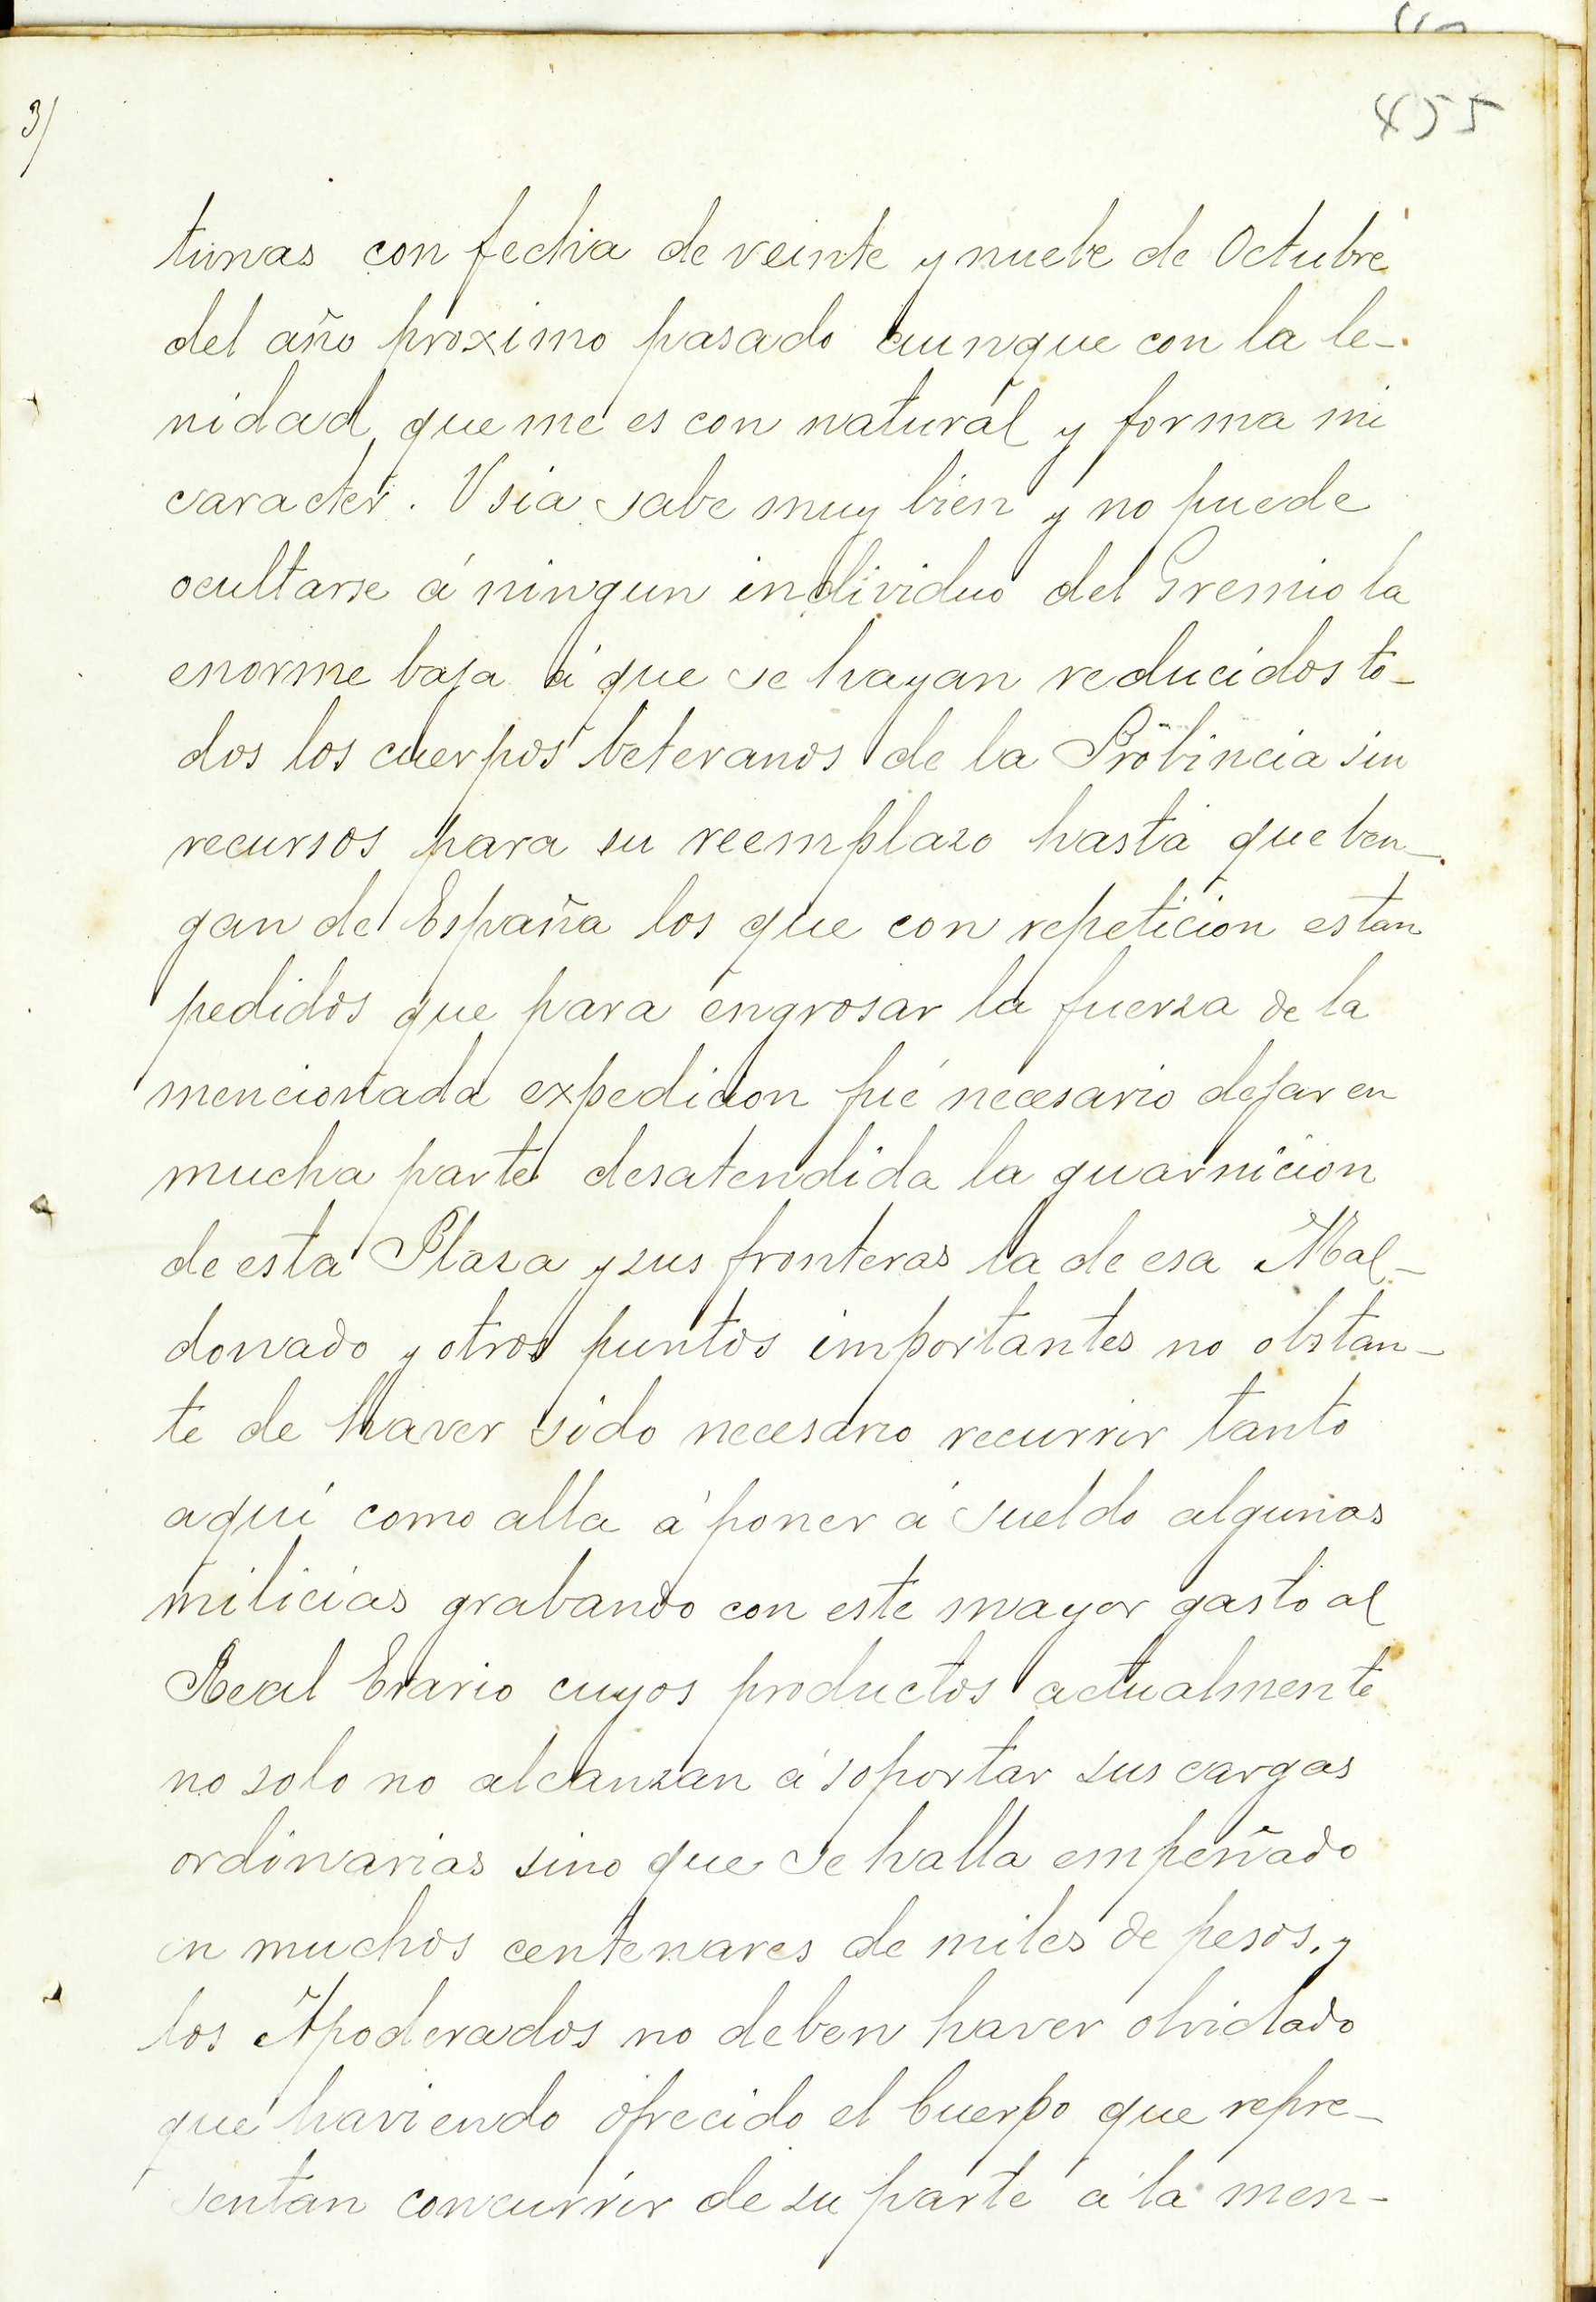 3/
455
tunas con fecha de veinte y nuebe de Octubre
del año proximo pasado aunque con la le-
nidad que me es con natural y forma mi
caracter. Vsia sabe muy bien y no puede
ocultarse á ningun individuo del Gremio la
enorme baja á que se hayan reducidos to-
dos los cuerpos beteranos de la Probincia sin
recursos para su reemplazo hasta que ben-
gan de España los que con repeticion estan
pedidos que para engrosar la fuerza de la
mencionada expedicion fué necesario dejar en
mucha parte desatendida la guarnicion
de esta Plaza y sus fronteras la de esa Mal-
donado y otros puntos importantes no obstan-
te de haver sido necesario recurrir tanto
aquí como alla á poner á sueldo algunas
milicias grabando con este mayor gasto al
Real Erario cuyos productos actualmente
no solo no alcanzan á soportar sus cargas
ordinarias sino que se halla empeñado
en muchos centenares de miles de pesos, y
los Apoderados no deben haver olvidado
que haviendo ofrecido el Cuerpo que repre-
sentan concurrir de su parte á la men-